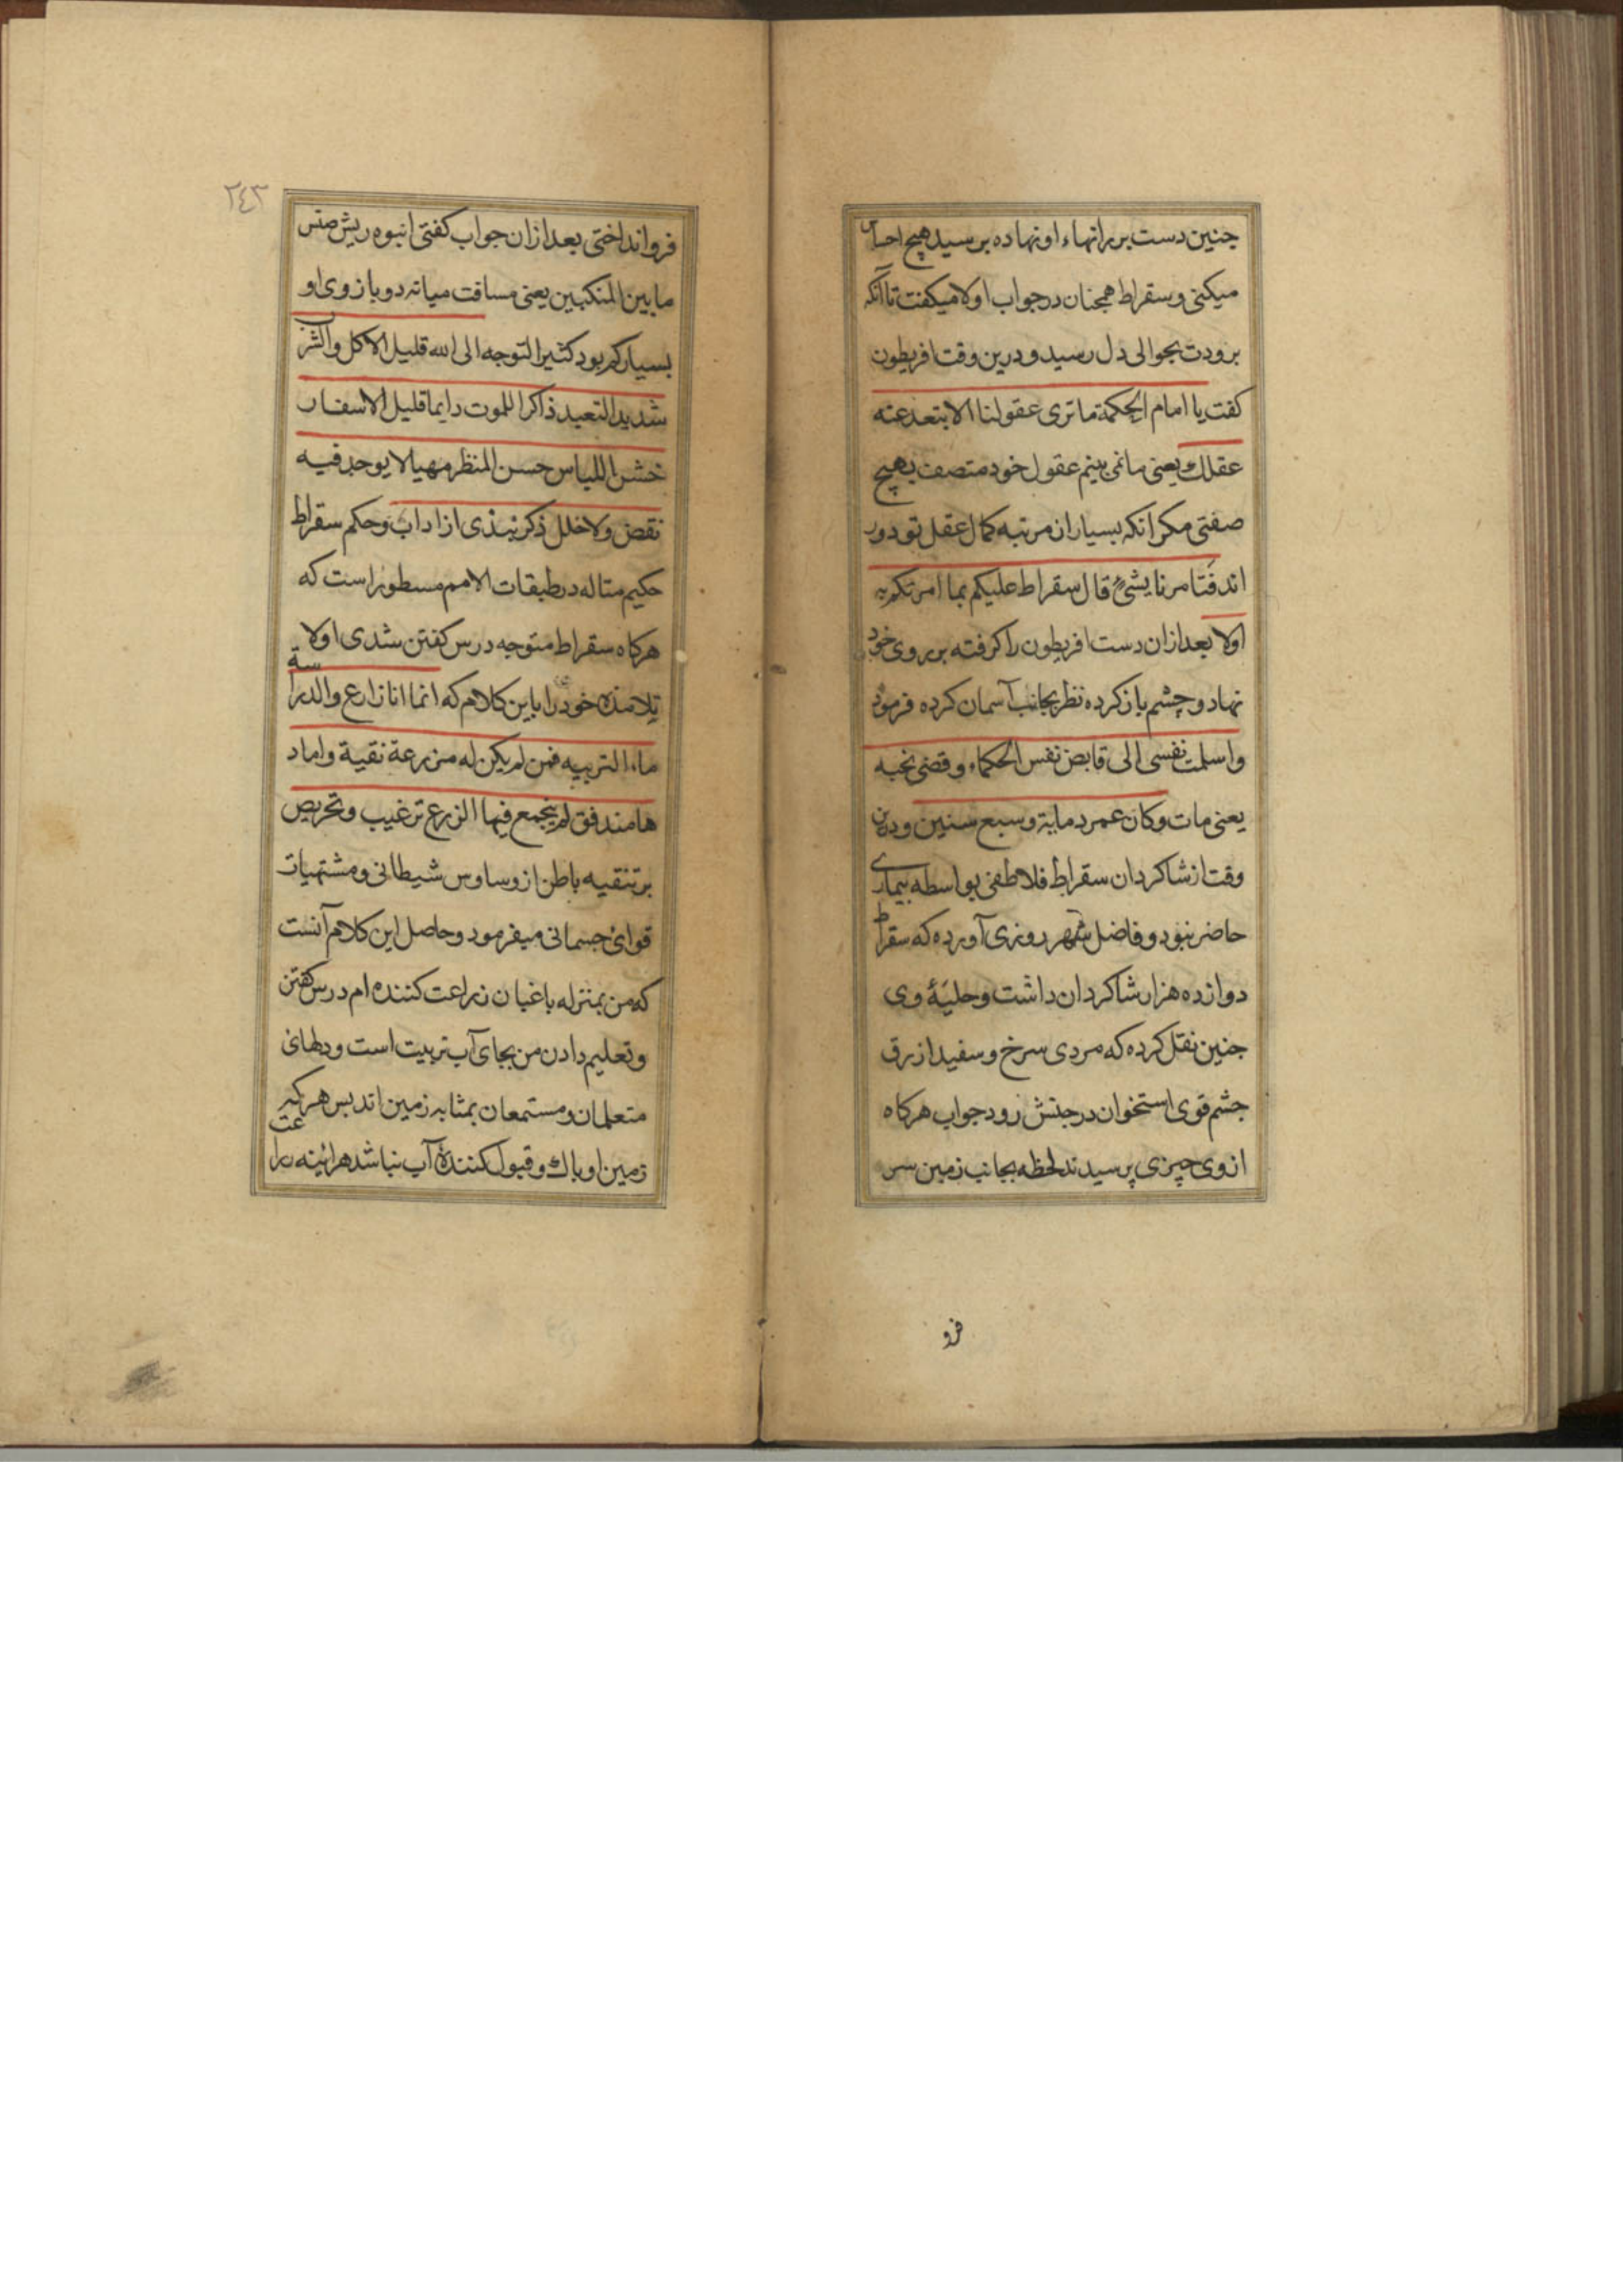 چنین دست بر رانهاء او نهاده بر سید هیچ احساس
میکنی و سقراط همجنان در جواب او لا میکفت تا آنکه
برودت بحوالی دل رسید و درین وقت افریطون
کفت یا امام الحکمة ما تری عقولنا الا بتعد عنه
عقلك یعنی ما نمی بینم عقول خود متصف بهیچ
صفتی مکر انکه بسیار از مرتبه کمال عقل تو دور
اند فتامرنا بشئ قال سقراط علیکم بما امرتکم به
اولا بعد ازان دست افریطون را کرفته بر روی خود
نهاد و چشم باز کرده نظر بجانب آسمان کرده فرمود
واسلمت نفسی الی قابض نفس الحکماء وقضی نحبه
یعنی مات وکان عمره مایة وسبع سنین و درین
وقت از شاکردان سقراط فلاطن بواسطه بیماری
حاضر نبود و فاضل شهر روزی آورده که سقراط
دوازده هزار شاکردان داشت و حلیۀ وی
جنین نقل کرده که مردی سرخ و سفید ازرق
جشم قوی استخوان در جنبش زود جواب هرکاه
از وی چیزی پرسیدند لحظه بجانب زمین سر
فرو
۲٤۳
فرو انداختی بعد ازان جواب کفتی انبوه ریش
ما بین المنکبین یعنی مسافت میانه دو بازوی او
بسیار کم بود کثیر التوجه الی الله قلیل الاکل والشرب
شدید التعبد ذاکرا للموت دایما قلیل الاسفار
خشن اللباس حسن المنظر مهیبا لا یوجد فیه
نقض ولا خلل ذکر نبذی از اداب و حکم سقراط
حکیم متاله در طبقات الامم مسطور است که
هرکاه سقراط متوجه درس کفتن شدی اولا
تلامذه خود را باین کلام که انما انا زارع والدراسة
ماء التربیه فمن لم یکن له مزرعة نقیة واماد
ها مندفق لم ینجمع فیها الزرع ترغیب و تحریص
بر تنقیه باطن از وساوس شیطانی و مشتهیات
قوای جسمانی میفرمود و حاصل این کلام آنست
که من بمنزله باغبان زراعت کننده ام درس کفتن
و تعلیم دادن من بجای آب تربیت است و دلهای
متعلمان و مستمعان بمثابه زمین اند بس هر که
زمین او باك و قبول کننده آب نباشد هرائینه زراعت